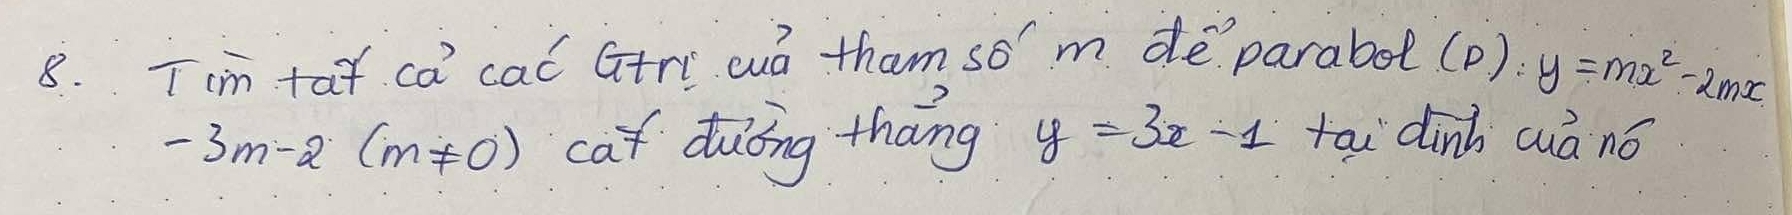 8. Tìm tất cả các Gtrị của tham số m để parabol (P): y = mx² - 2mx
- 3m - 2 (m ≠ 0) cắt đường thẳng y = 3x - 1 tại đỉnh của nó